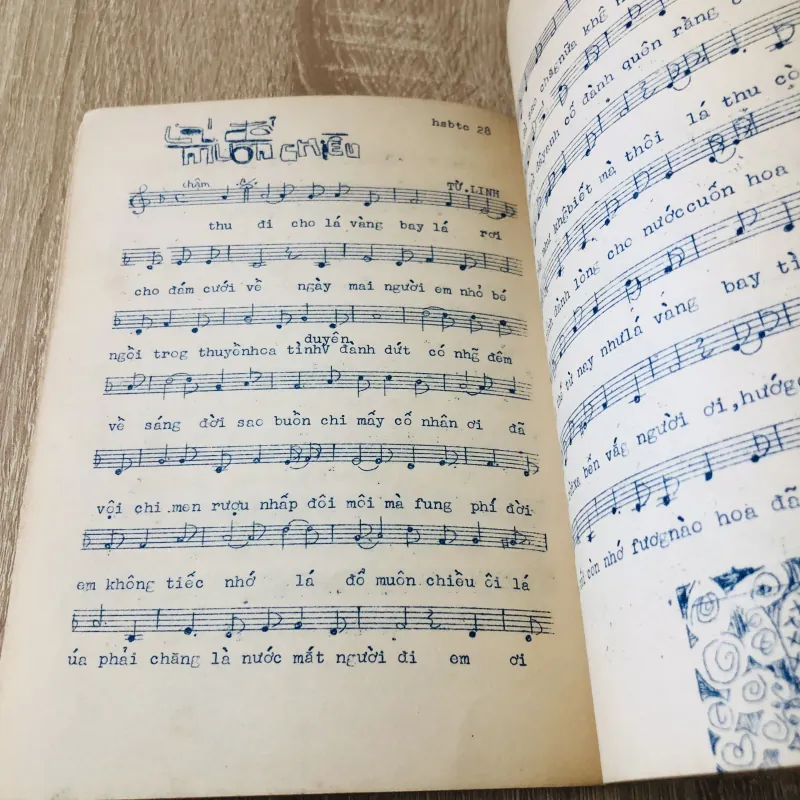 hsbtc 28
lá đổ
muôn chiều
chậm
TỪ.LINH
thu đi cho lá vàng bay lá rơi
cho đám cưới về ngày mai người em nhỏ bé
duyên
ngồi trog thuyềnhoa tình đành dứt có nhg̃ đêm
về sáng đời sao buồn chi mấy cố nhân ơi đã
vội chi men rượu nhấp đôi môi mà fung phí đời
em không tiếc nhớ lá đổ muôn chiều ôi lá
úa phải chăng là nước mắt người đi em ơi
nữa khg̃
cố đành quên rằng
khg̃biết mà thôi lá thu cò
đành lòng cho nướccuốn hoa
từ nay nhưlá vàng bay tì
bến vắg người ơi,hướg
còn nhớ fươgnào hoa đã